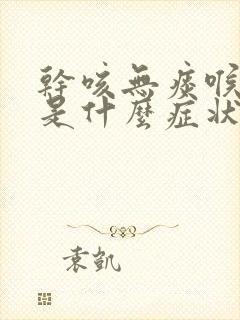 幹咳無痰喉
是什麼症狀
袁凱